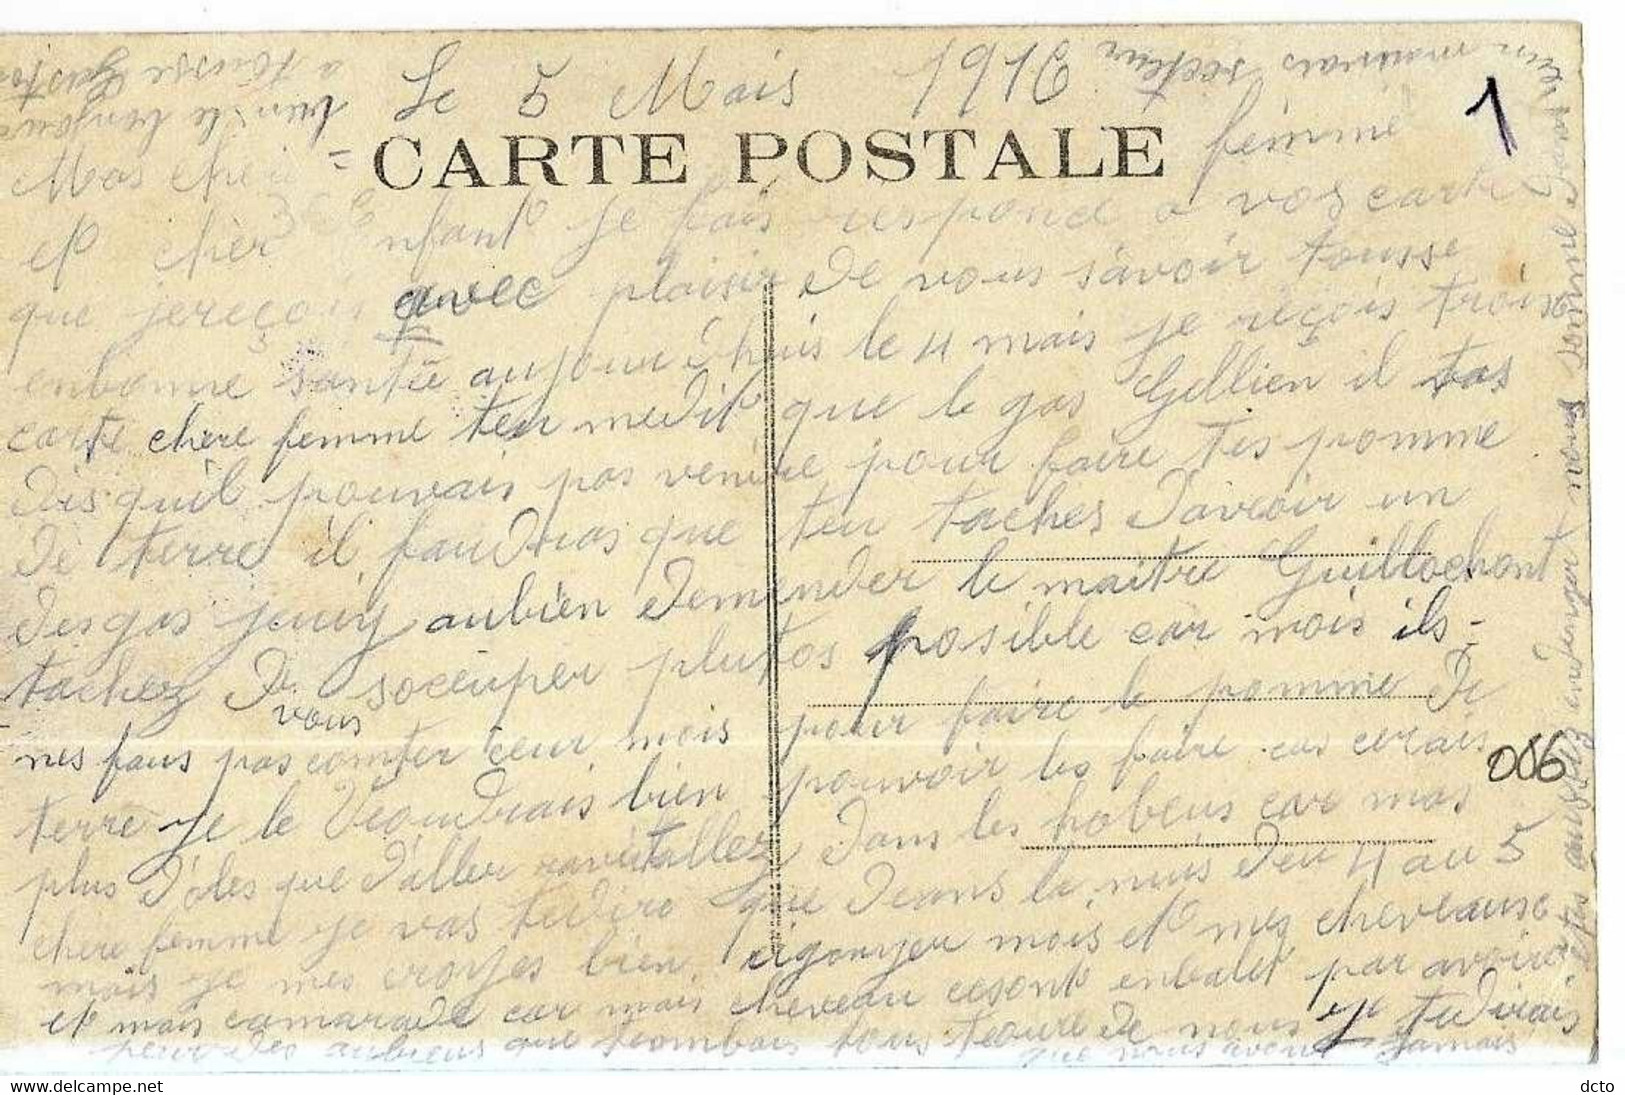 Le 5 Mais 1916
CARTE POSTALE
1
Mas cher femme
et cher enfant je fais respond a vos carte
que jereçois avec plaisir de vous savoir tousse
enbonne santée aujourd'huis le 4 mais je reçois trois
carte chere femme teu medit que le gas Gellien il tas
dis quil pouvais pas venire pour faire tes pomme
de terre il faudras que teu taches davoir un
des gas jouy aubien demender le maitre Guillochont
tachez de vous soccuper plutos posible car mois ils
nes faus pas compter seur mois pour faire le pomme de
terre je le voudrais bien pouvoir les faire cas cerais
086
plus d'oles que d'aller ravitallez dans les hobeus car mas
chere femme je vas tedire que deans la nuis deu 4 au 5
mais je mes croyes bien mois et mes cheveause
et mais camarade car mais cheveau cesont enbalet par avoire
peur des aubeus que trombais tous teoure de nous je tedirais
que nous avons jamais
etes ausibien endenger nous somme dans
un mauvais secteur
bien le bonjour
a tousse